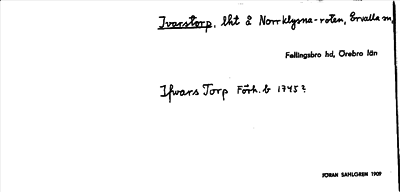 Ivarstorp, lht å Norrklysna-roten, Ervalla sn,
Fellingsbro hd, Örebro län
Ifvars Torp Förh.b 1745?
JÖRAN SAHLGREN 1909